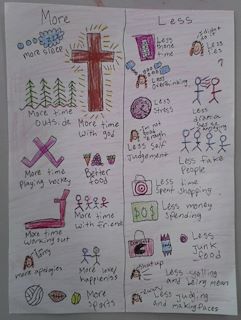 More
more sleep
More time
outside
More time
with god
More time
playing hockey
Better
food
More time
working out
More time
with friends
more apologies
More love/
happieness
More
sports
Less
Less
phone
time
Less
lies
Less
overthinking
Less
stress
Less
drama
Less self
Judgement
Less fake
people
Less time
spent shopping
Less money
spending
Less
Junk
food
shutup
Less yelling
and being mean
Less Judging
and making faces